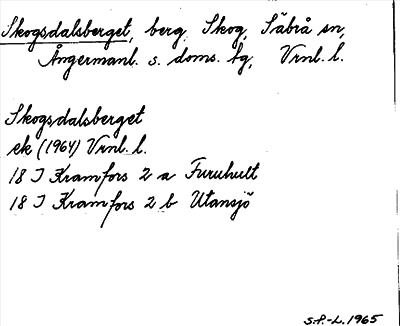 Skogsdalsberget, berg, Skog, Säbrå sn,
Ångermanl. s. doms. tg, Vrnl. l.
Skogsdalsberget
ek (1964) Vrnl. l.
18 I Kramfors 2 a Furuhult
18 I Kramfors 2 b Utansjö
S.P.-L. 1965